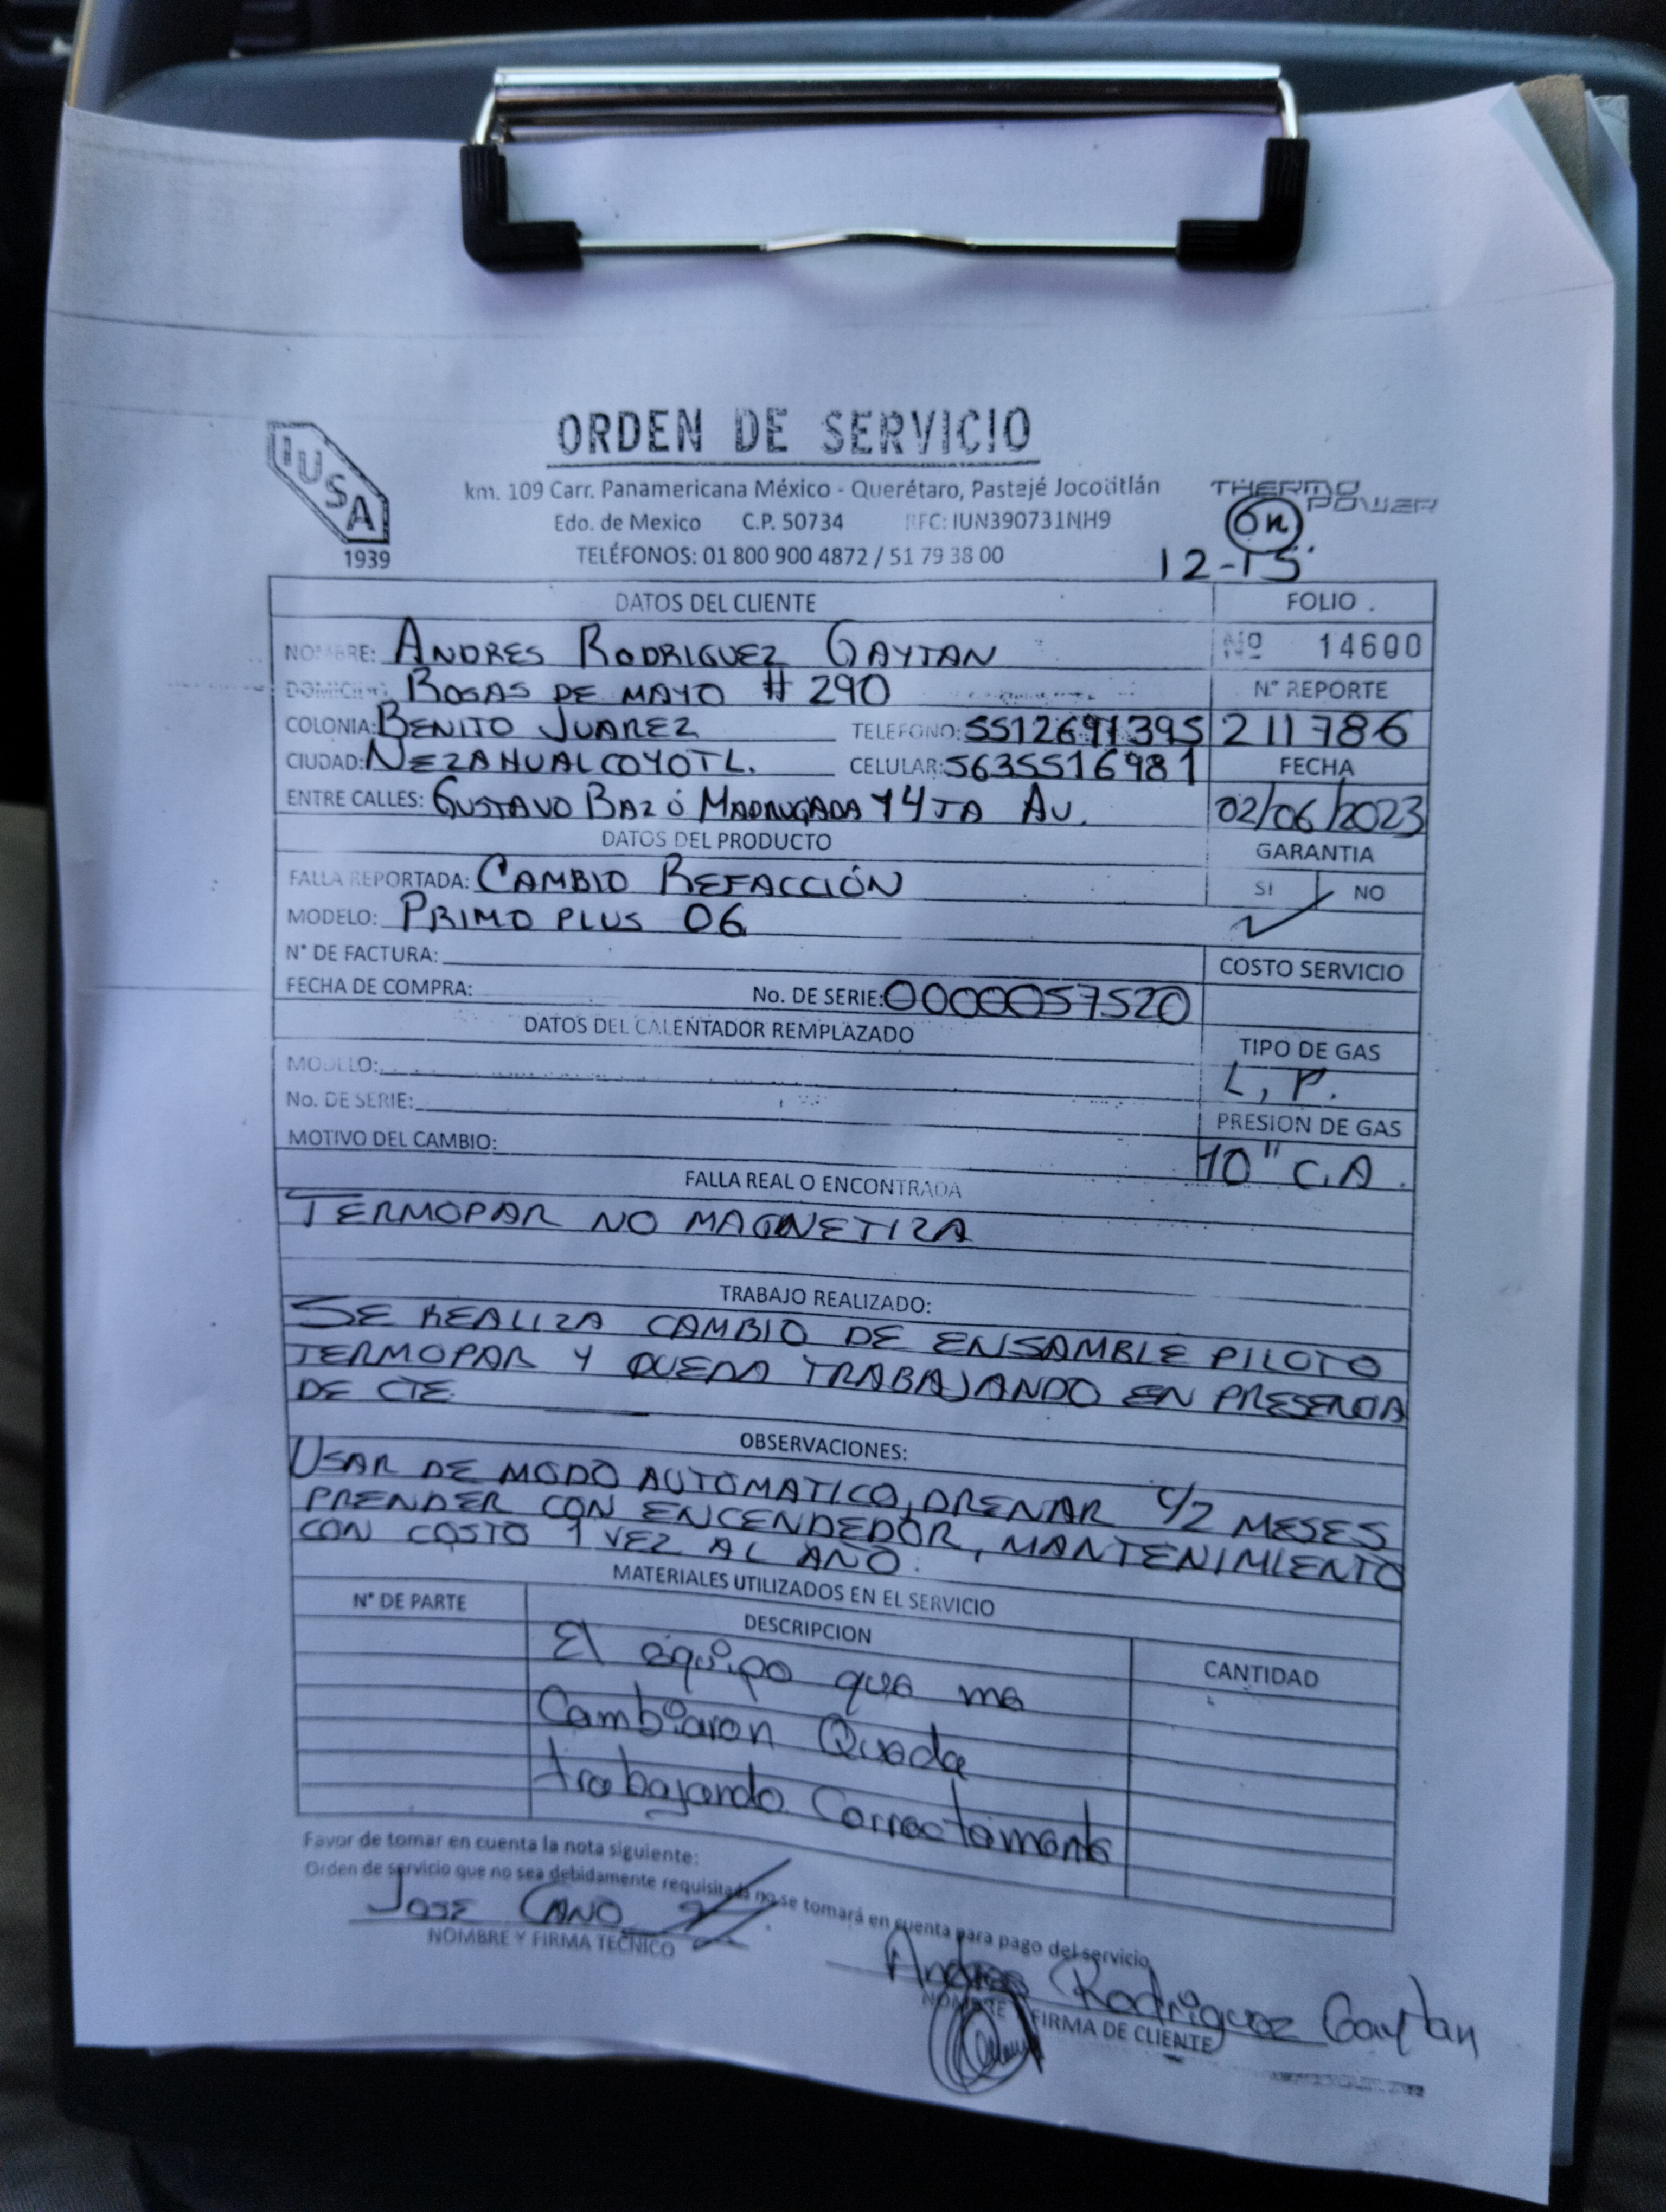 IUSA
1939
ORDEN DE SERVICIO
km. 109 Carr. Panamericana México - Querétaro, Pastejé Jocotitlán
Edo. de Mexico C.P. 50734 RFC: IUN390731NH9
TELÉFONOS: 01 800 900 4872 / 51 79 38 00
THERMO
POWER
12-15
DATOS DEL CLIENTE FOLIO
NOMBRE: ANDRES RODRIGUEZ GAYTAN Nº 14600
DOMICILIO: ROSAS DE MAYO # 290 N° REPORTE
COLONIA: BENITO JUAREZ TELEFONO: 5512691395 211786
CIUDAD: NEZAHUALCOYOTL. CELULAR: 5635516981 FECHA
ENTRE CALLES: GUSTAVO BAZ Ó MADRUGADA Y 4TA AV. 02/06/2023
DATOS DEL PRODUCTO GARANTIA
FALLA REPORTADA: CAMBIO REFACCIÓN SI NO
MODELO: PRIMO PLUS 06
N° DE FACTURA: COSTO SERVICIO
FECHA DE COMPRA: No. DE SERIE: 0000057520
DATOS DEL CALENTADOR REMPLAZADO TIPO DE GAS
MODELO: L, P.
No. DE SERIE: PRESION DE GAS
MOTIVO DEL CAMBIO: 10" C.A.
FALLA REAL O ENCONTRADA
TERMOPAR NO MAGNETIZA
TRABAJO REALIZADO:
SE REALIZA CAMBIO DE ENSAMBLE PILOTO
TERMOPAR Y QUEDA TRABAJANDO EN PRESENCIA
DE CTE.
OBSERVACIONES:
USAR DE MODO AUTOMATICO, DRENAR C/2 MESES
PRENDER CON ENCENDEDOR, MANTENIMIENTO
CON COSTO 1 VEZ AL AÑO.
MATERIALES UTILIZADOS EN EL SERVICIO
N° DE PARTE DESCRIPCION CANTIDAD
El equipo que me
Cambiaron Queda
trabajando Correctamente
Favor de tomar en cuenta la nota siguiente:
Orden de servicio que no sea debidamente requisitada no se tomará en cuenta para pago del servicio
JOSE CANO
NOMBRE Y FIRMA TECNICO
Andres Rodriguez Gaytan
NOMBRE FIRMA DE CLIENTE